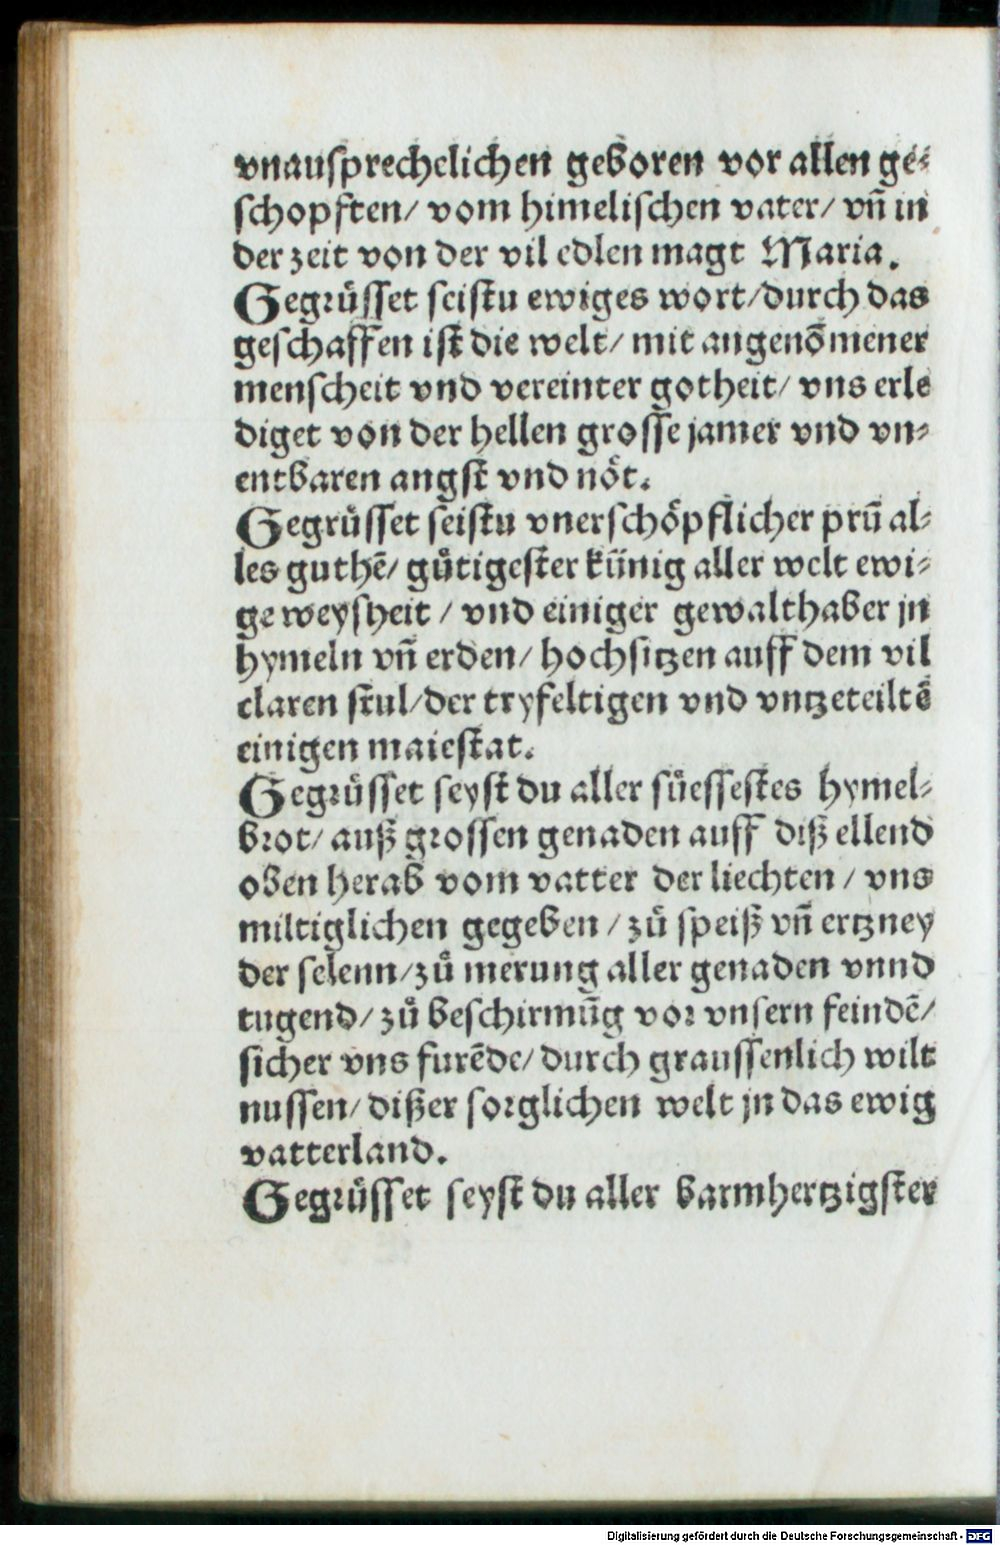 vnausprechelichen geboren vor allen ge⸗
schopften/ vom himelischen vater/ vñ in
der zeit von der vil edlen magt Maria.
Gegrüsset seistu ewiges wort/durch das
geschaffen ist die welt/ mit angenõmener
menscheit vnd vereinter gotheit/ vns erle
diget von der hellen grosse jamer vnd vn⸗
entbaren angst vnd nöt.
Gegrüsset seistu vnerschöpflicher prũ al⸗
les guthẽ/ gůtigester künig aller welt ewi⸗
ge weysheit / vnd einiger gewalthaber jn
hymeln vñ erden/ hochsitzen auff dem vil
claren stul/der tryfeltigen vnd vntzeteiltẽ
einigen maiestat.
Gegrüsset seyst du aller süessestes hymel⸗
brot/ auß grossen genaden auff diß ellend
oben herab vom vatter der liechten / vns
miltiglichen gegeben / zů speiß vñ ertzney
der selenn/zů merung aller genaden vnnd
tugend/ zů beschirmũg vor vnsern feindẽ/
sicher vns furẽde/ durch graussenlich wilt
nussen/ dißer sorglichen welt jn das ewig
vatterland.
Gegrüsset seyst du aller barmhertzigster
Digitalisierung gefördert durch die Deutsche Forschungsgemeinschaft - DFG